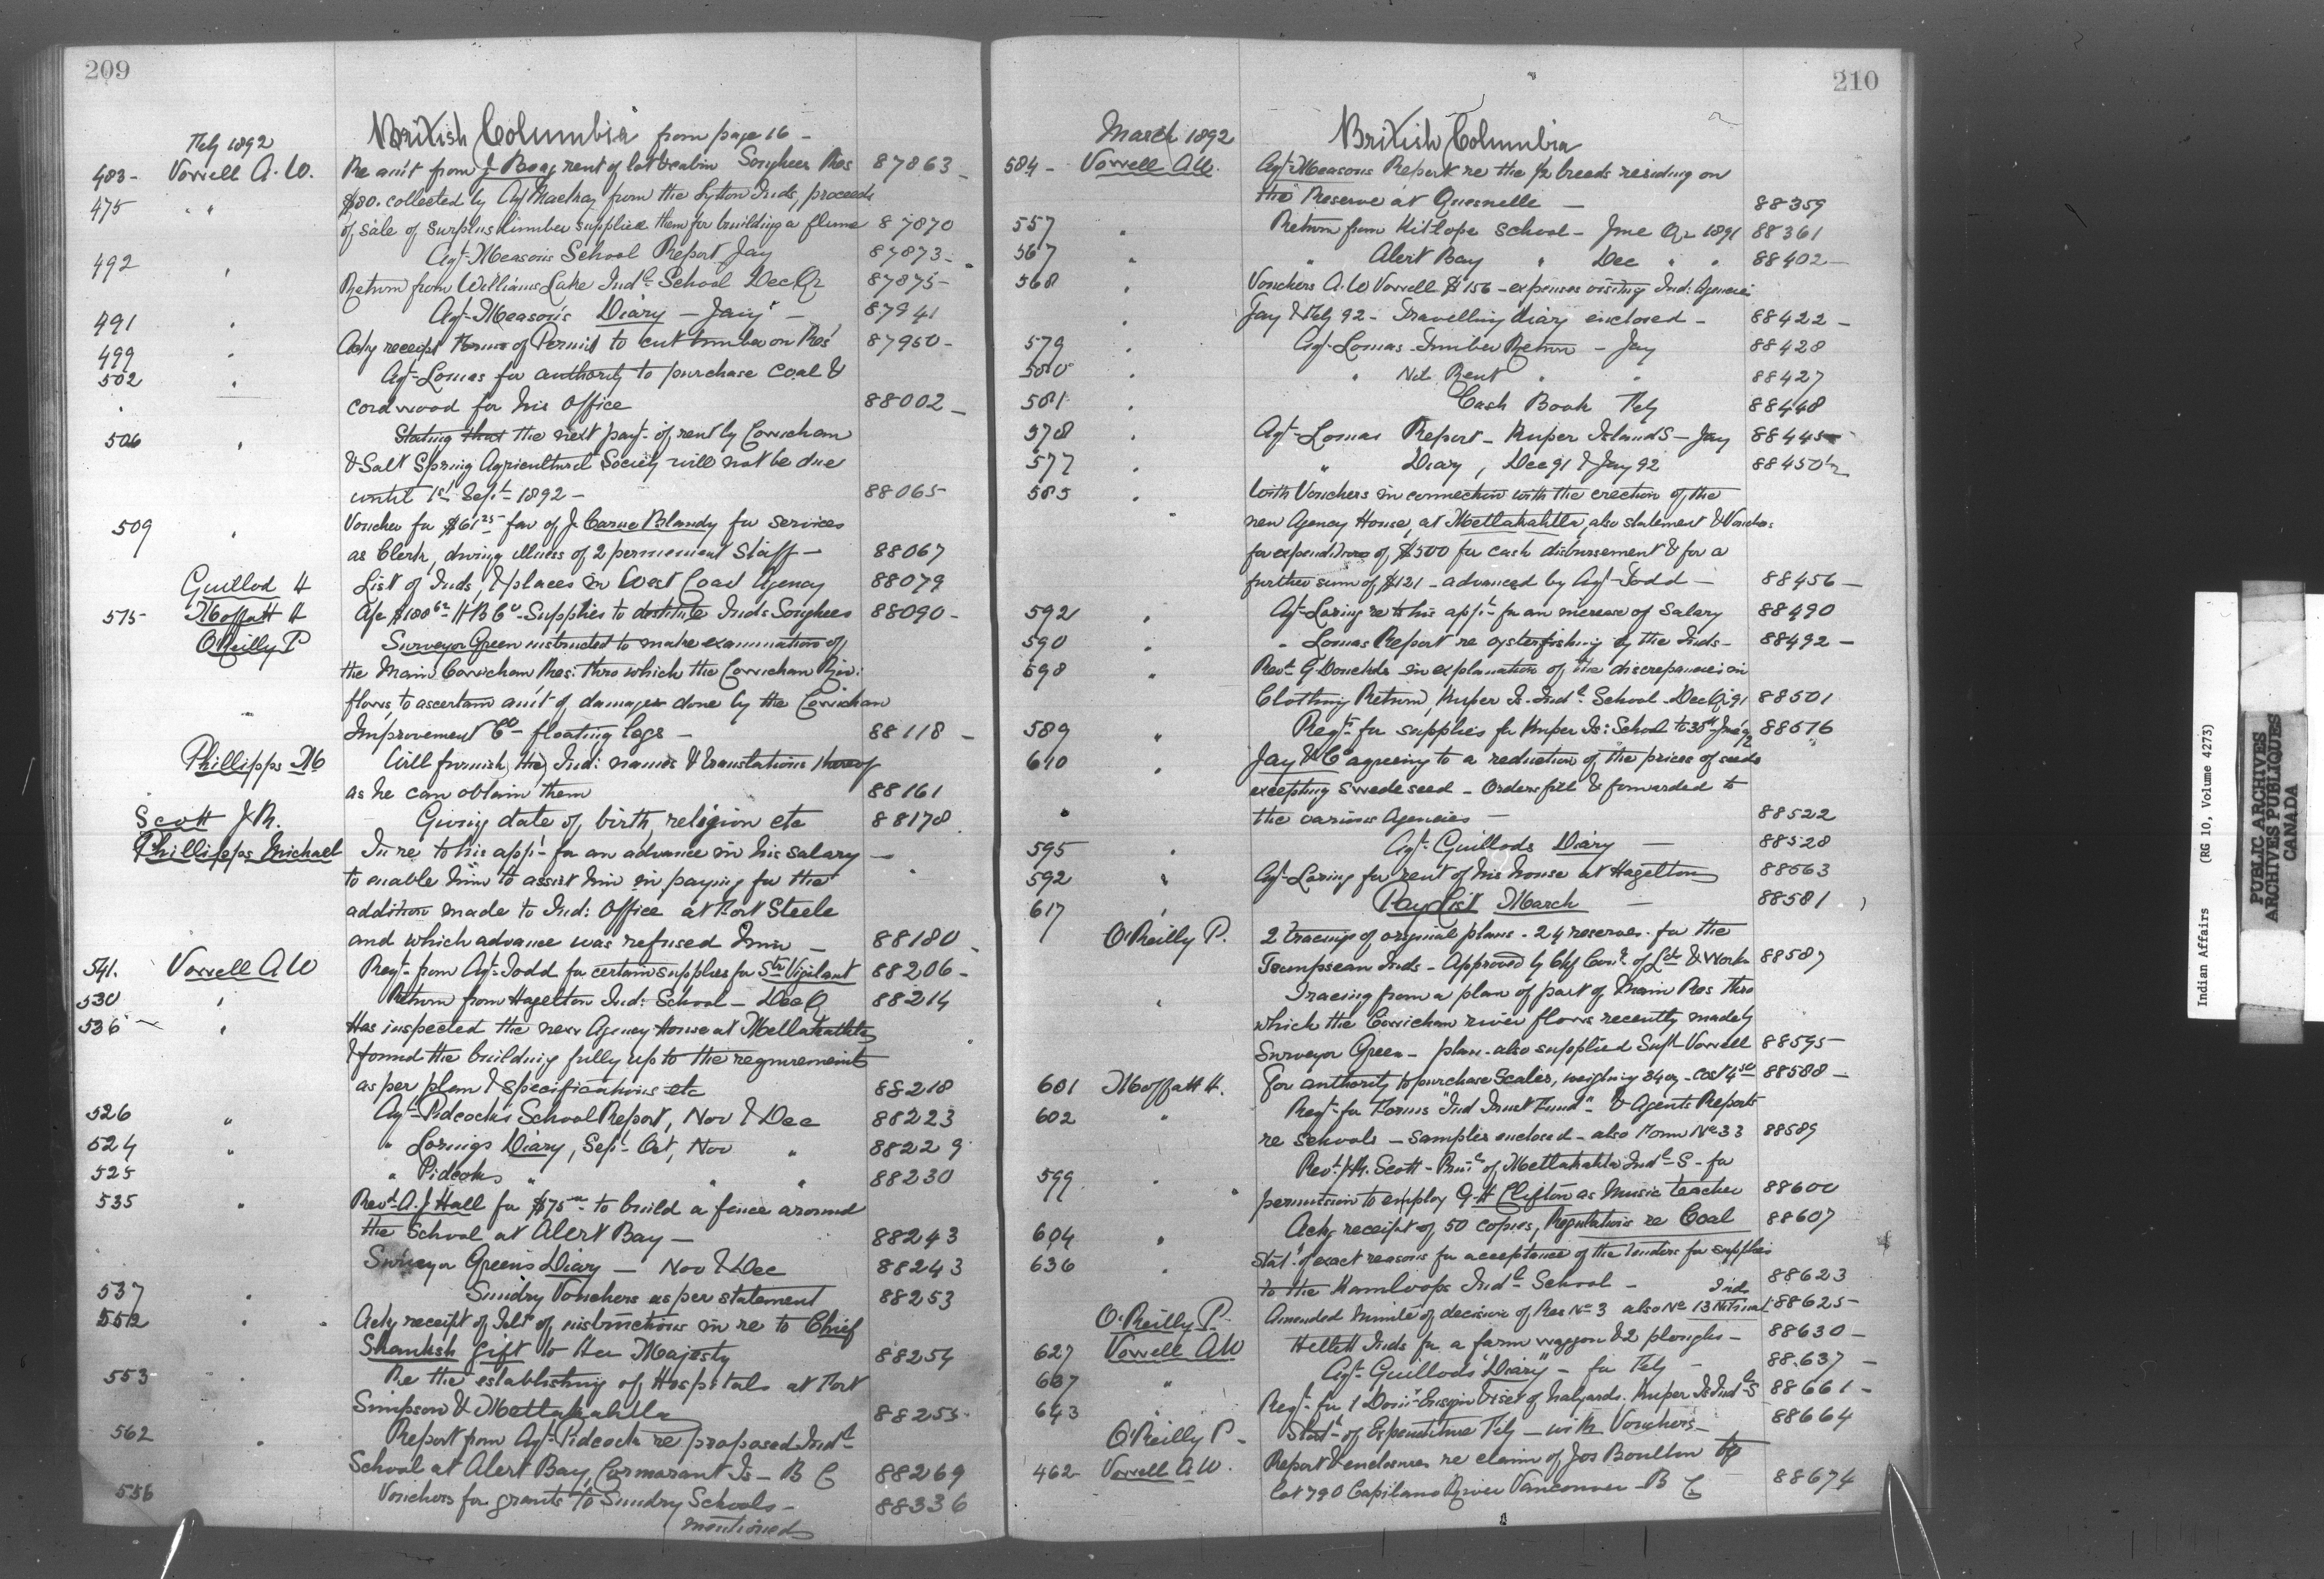 209
British Columbia from page 16 -
Feby 1892
483 - Vowell A. W. Re am't from J. Boag rent of lot & cabin Songhees Res 87863 -
475 " " $80. collected by Agt Mackay from the Lytton Inds, proceeds
of sale of surplus lumber supplied them for building a flume 87870
Agt Meason's School Report Jay 87873 -
492 " Return from Williams Lake Indl School Dec Qr 87875 -
Agt Meason's Diary - Jany - 87941
491 " Ackg receipt Forms of Permit to cut timber on Res' 87950 -
499 "
502 " Agt Lomas for authority to purchase coal &
cordwood for his office 88002 -
506 " Stating that the next payt of rent by Cowichan
& Salt Spring Agricultural Society will not be due
until 1st Sept 1892 - 88065
509 " Voucher for $61 25 fav of J. Carne Blandy for services
as Clerk, during illness of 2 permement Staff - 88067
Guillod H List of Inds, & places in West Coast Agency 88079
515 Moffatt H A/c $100 H B Co Supplies to destitute Inds Songhees 88090 -
O'Reilly P Surveyor Green instructed to make examination of
the Main Cowichan Res: thro which the Cowichan Riv:
flows, to ascertain am't of damages done by the Cowichan
Improvement Co floating logs - 88118 -
Phillipps M Will furnish the Ind: names & translations thereof
as he can obtain them 88161
Scott J. R. Giving date of birth, religion etc 88178
Phillipps Michael In re to his appn for an advance in his salary -
to enable him to assist him in paying for the
addition made to Ind: Office at Fort Steele
and which advance was refused him - 88180 -
541. Vowell A W Reqt from Agt Todd for certain supplies for Str Vigilant 88206 -
530 " Return from Hagelton Ind: School - Dec Q 88214
536 - " Has inspected the new Agency House at Metlakahtla
& found the building fully up to the requirements
as per plan & specifications etc 88218
526 " Agt Pidcock's School Report, Nov & Dec 88223
524 " " Loring's Diary, Sept Oct, Nov " 88229
525 " Pidcocks " " " 88230
535 " Revd A. J. Hall for $75 to build a fence around
the School at Alert Bay - 88243
Surveyor Green's Diary - Nov & Dec 88243
537 " Sundry Vouchers as per statement 88253
552 " Ackg receipt of instructions in re to Chief
Skanksh gift to Her Majesty 88254
553 " Re the establishing of Hospitals at Fort
Simpson & Metlakahtla 88255
562 " Report from Agt Pidcock re proposed Indl
School at Alert Bay, Cormorant Is - B C 88269
556 Vouchers for grants to Sundry Schools - 88336
mentioned
210
March 1892 British Columbia
584 - Vowell A W. Agt Meason's Report re the ½ breeds residing on
the Reserve at Quesnelle - 88359
557 " Return from Kitlope School - June Qr 1891 88361
567 " " Alert Bay " Dec " " 88402 -
568 " Vouchers A. W Vowell $156 - expenses visiting Ind: Agencies
" Jay & Feby 92 - Travelling diary enclosed - 88422 -
579 " Agt Lomas Timber Return - Jay 88428
580 " " Nil Rent " " 88427
581 " Cash Book Feby 88448
578 " Agt Lomas Report - Kuper Islands - Jay 88445
577 " " Diary, Dec 91 & Jay 92 88450½
585 " With Vouchers in connection with the erection of the
" new Agency House, at Metlakahtla, also statement & Vouchers
for expenditure of $500 for cash disbursement & for a
further sum of $121 - advanced by Agt Todd - 88456 -
592 " Agt Loring re to his appn for an increase of salary 88490
590 " " Lomas Report re oysterfishing by the Inds - 88492 -
598 " Revd G Donckele in explanation of the discrepancies in
Clothing Return, Kuper Is. Indl School Dec Qr 91 88501
589 " Reqt for supplies for Kuper Is: School to 30th June 92 88516
610 " Jay & Co agreeing to a reduction of the prices of seeds
excepting swede seed - Orders fill & forwarded to
" the various Agencies - 88522
595 " Agt Guillods Diary - 88528
592 " Agt Loring for rent of his house at Hagelton 88563
617 " Pay List March - 88581
O'Reilly P. 2 tracings of original plans - 24 reserves for the
Tsimpsean Inds - Approved by Chf Comr of Lds & Works 88587
" Tracing from a plan of part of Main Res thro
which the Cowichan river flows recently made by
Surveyor Green - plan also supplied Supt Vowell 88595 -
601 Moffatt H. For authority to purchase Scales, weighing 34 oz - cost 4 50 88588 -
602 " Reqt for Forms "Ind Trust Fund" - & Agents Reports
re schools - samples enclosed - also Form No 33 88589
599 " Revd J. R. Scott - Prinl of Metlakahtla Indl S - for
permission to employ G. H Clifton as Music teacher 88600
604 " Ackg receipt of 50 copies, Regulations re Coal 88607
636 " Statt of exact reasons for acceptance of the tenders for supplies
to the Kamloops Indl School - 88623
O'Reilly P. Amended minute of decision of Res No 3 also No 13 Inds 88625 -
627 Vowell A W Inds for a farm waggon & 2 ploughs - 88630 -
637 " Agt Guillods "Diary" - for Feby - 88637 -
643 " Reqt for 1 Domn Ensign & set of halyards. Kuper Is Indl S 88661 -
O'Reilly P - Statt of Expenditure Feby - with Vouchers - 88664
462 Vowell A W. Report & enclosures re claim of Jos Boulton to
lot 790 Capilano River Vancouver B C 88674
Indian Affairs (RG 10, Volume 4273)
PUBLIC ARCHIVES
ARCHIVES PUBLIQUES
CANADA